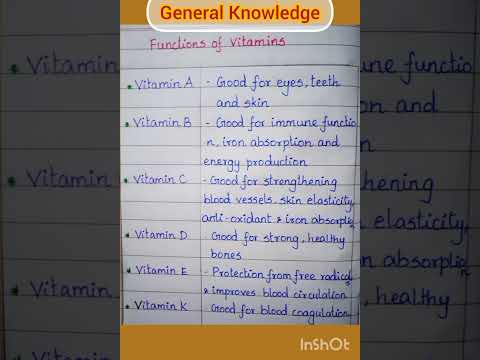 General Knowledge
Functions of Vitamins
Vitamin A - Good for eyes, teeth
and skin
Vitamin B - Good for immune functio
n, iron absorption and
energy production
Vitamin C - Good for strengthening
blood vessels, skin elasticity,
anti-oxidant & iron absorption
Vitamin D Good for strong, healthy
bones
Vitamin E - Protection from free radicals
& improves blood circulation
Vitamin K Good for blood coagulation
InShOt